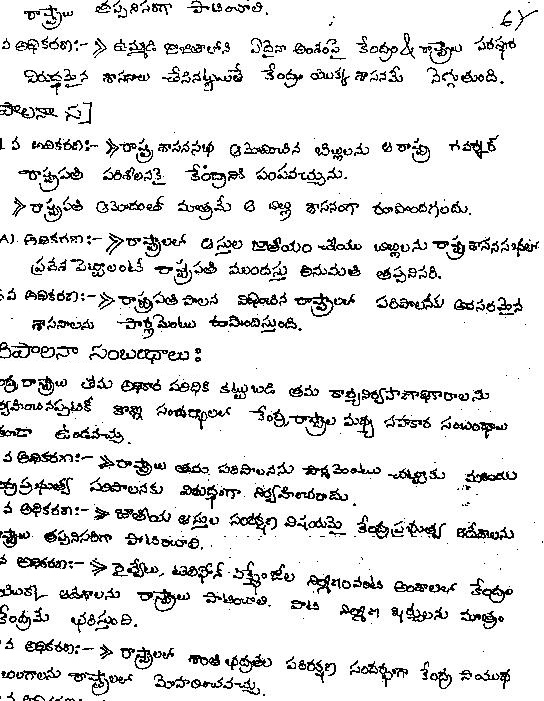 రాష్ట్రాలు తప్పనిసరిగా పాటించాలి.
వ అధికరణ:- → ఉమ్మడి జాబితాలోని ఏదైనా అంశంపై కేంద్రం & రాష్ట్రాలు పరస్పర
విరుద్ధమైన శాసనాలు చేసినట్లయితే కేంద్రం యొక్క శాసనమే నెగ్గుతుంది.
వ అధికరణ:- → రాష్ట్ర శాసనసభ ఆమోదించిన బిల్లులను ఆ రాష్ట్ర గవర్నర్
రాష్ట్రపతి పరిశీలనకై కేంద్రానికి పంపవచ్చును.
→ రాష్ట్రపతి ఆమోదంతో మాత్రమే ఆ బిల్లు శాసనంగా రూపొందగలదు.
అధికరణ:- → రాష్ట్రాలలో ఆస్తుల జాతీయం చేయు బిల్లులను రాష్ట్ర శాసనసభలో
ప్రవేశ పెట్టాలంటే రాష్ట్రపతి ముందస్తు అనుమతి తప్పనిసరి.
వ అధికరణ:- → రాష్ట్రపతి పాలన విధించిన రాష్ట్రాలలో పరిపాలనకు అవసరమైన
శాసనాలను పార్లమెంటు రూపొందిస్తుంది.
రిపాలనా సంబంధాలు:
రాష్ట్రాలు తమ అధికార పరిధికి కట్టుబడి తమ కార్యనిర్వహణాధికారాలను
కొన్ని సందర్భాలలో కేంద్ర రాష్ట్రాల మధ్య సహకార సంబంధాలు
కూడా ఉండవచ్చు.
వ అధికరణ:- → రాష్ట్రాలు తమ పరిపాలనను పార్లమెంటు చట్టాలకు మరియు
కేంద్రప్రభుత్వ పరిపాలనకు విరుద్ధంగా నిర్వహించరాదు.
వ అధికరణ:- → జాతీయ ఆస్తుల సంరక్షణ విషయమై కేంద్రప్రభుత్వ ఆదేశాలను
రాష్ట్రాలు తప్పనిసరిగా పాటించాలి.
అధికరణ:- → రైల్వేలు, టెలిఫోన్ ఎక్స్ఛేంజీల నిర్మాణం వంటి అంశాలలో కేంద్రం
యొక్క ఆదేశాలను రాష్ట్రాలు పాటించాలి. వాటి నిర్మాణ ఖర్చులను మాత్రం
కేంద్రమే భరిస్తుంది.
వ అధికరణ:- → రాష్ట్రాలలో శాంతి భద్రతల పరిరక్షణ సందర్భంగా కేంద్ర సాయుధ
బలగాలను రాష్ట్రాలలో మోహరించవచ్చు.